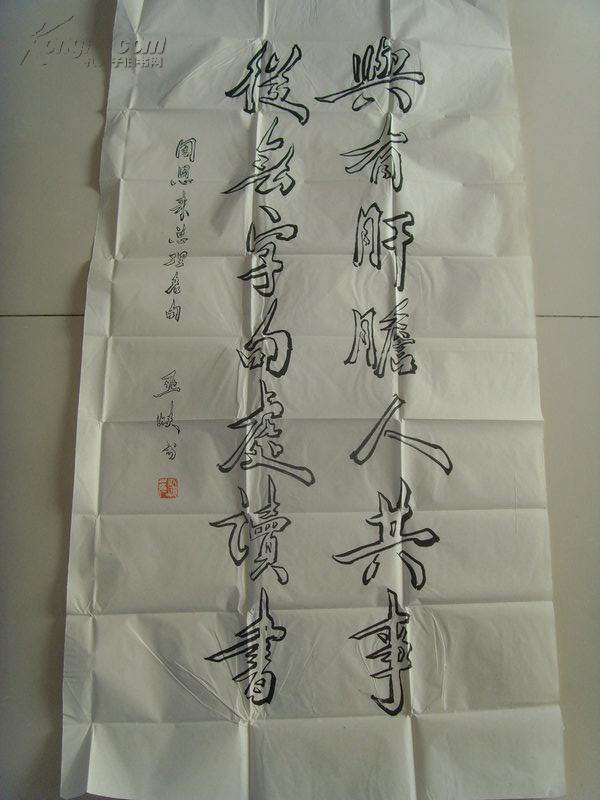 與有肝膽人共事
從無字句處讀書
周恩来总理名句
亚峡书
Kongfz.com
孔夫子旧书网